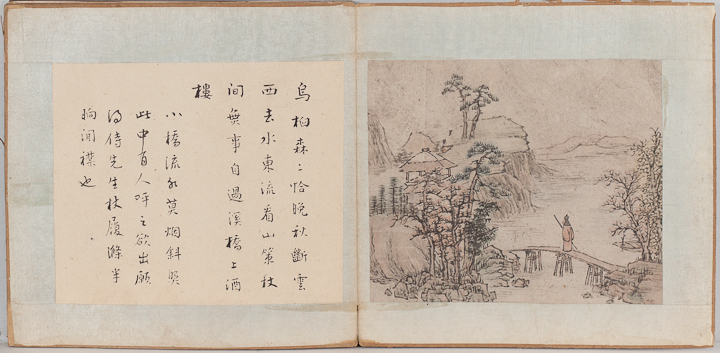 烏桕森〻恰晚秋斷雲
西去水東流看山策杖
間無事自過溪橋上酒
樓
小橋流水莫烟斜照
此中有人呼之欲出願
得侍先生杖履滌半
晌間襟也